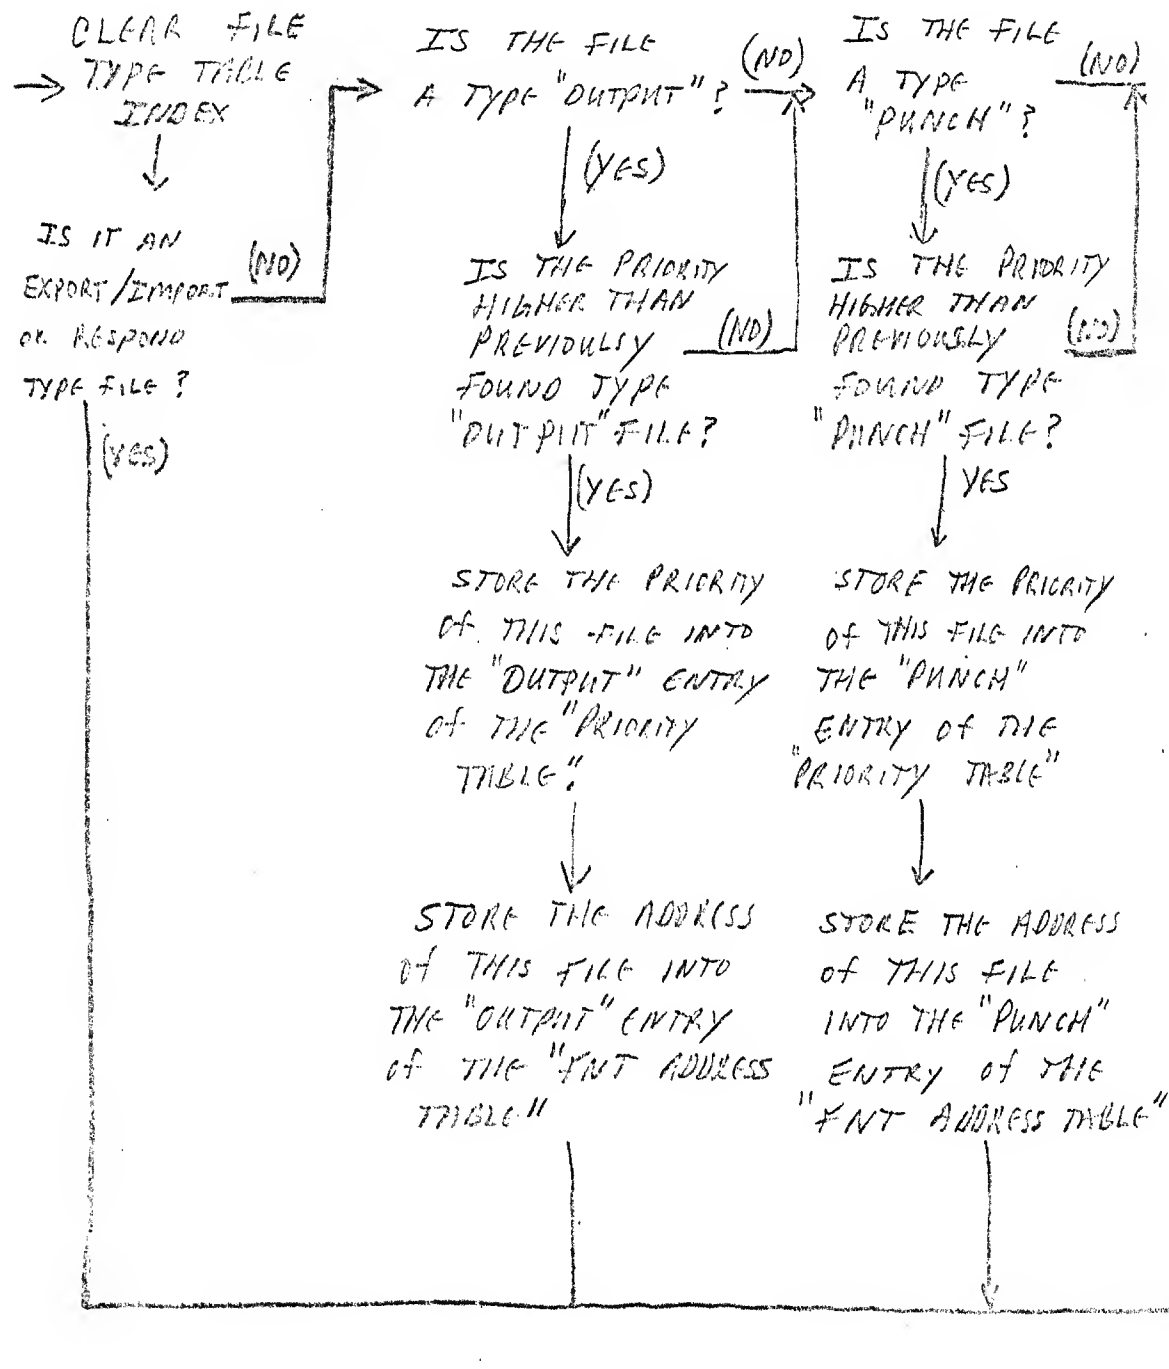 CLEAR FILE
TYPE TABLE
INDEX
IS IT AN
EXPORT/IMPORT
OR RESPOND
TYPE FILE?
(NO)
(YES)
IS THE FILE
A TYPE "OUTPUT"?
(NO)
(YES)
IS THE PRIORITY
HIGHER THAN
PREVIOULSY
FOUND TYPE
"OUTPUT" FILE?
(NO)
(YES)
STORE THE PRIORITY
OF THIS FILE INTO
THE "OUTPUT" ENTRY
OF THE "PRIORITY
TABLE".
STORE THE ADDRESS
OF THIS FILE INTO
THE "OUTPUT" ENTRY
OF THE "FNT ADDRESS
TABLE"
IS THE FILE
A TYPE
"PUNCH"?
(NO)
(YES)
IS THE PRIORITY
HIGHER THAN
PREVIOUSLY
FOUND TYPE
"PUNCH" FILE?
(NO)
YES
STORE THE PRIORITY
OF THIS FILE INTO
THE "PUNCH"
ENTRY OF THE
"PRIORITY TABLE"
STORE THE ADDRESS
OF THIS FILE
INTO THE "PUNCH"
ENTRY OF THE
"FNT ADDRESS TABLE"